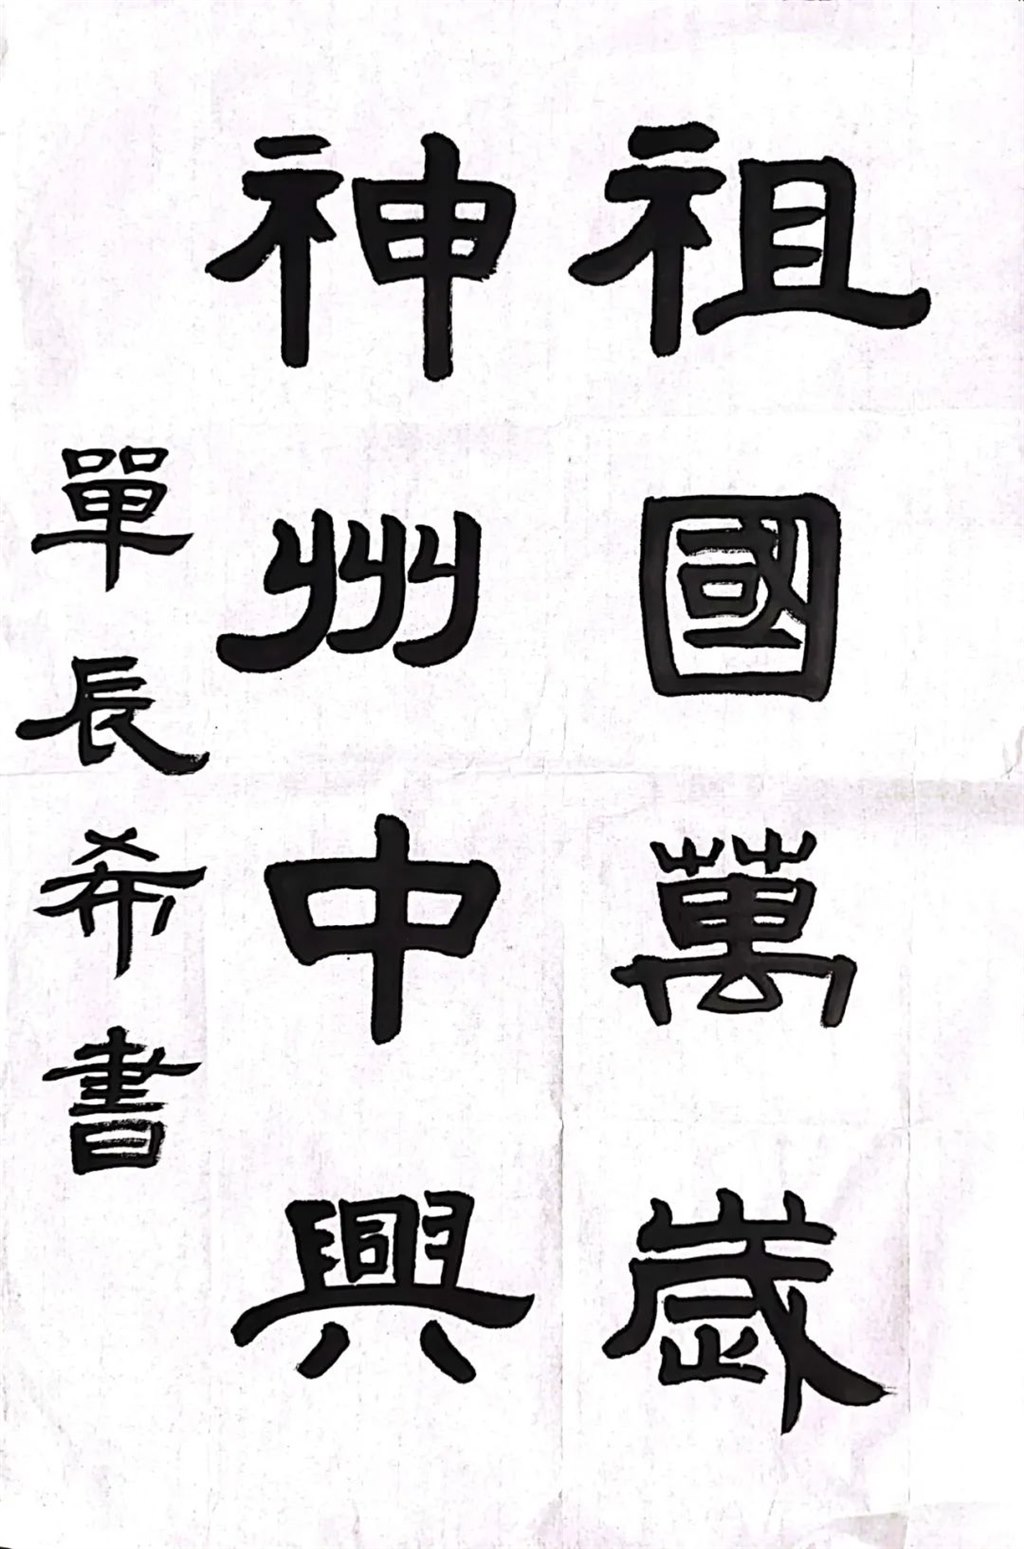 祖國萬歲
神州中興
單長希書